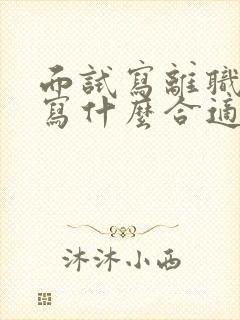 面試寫離職
寫什麼合適
沐沐小西